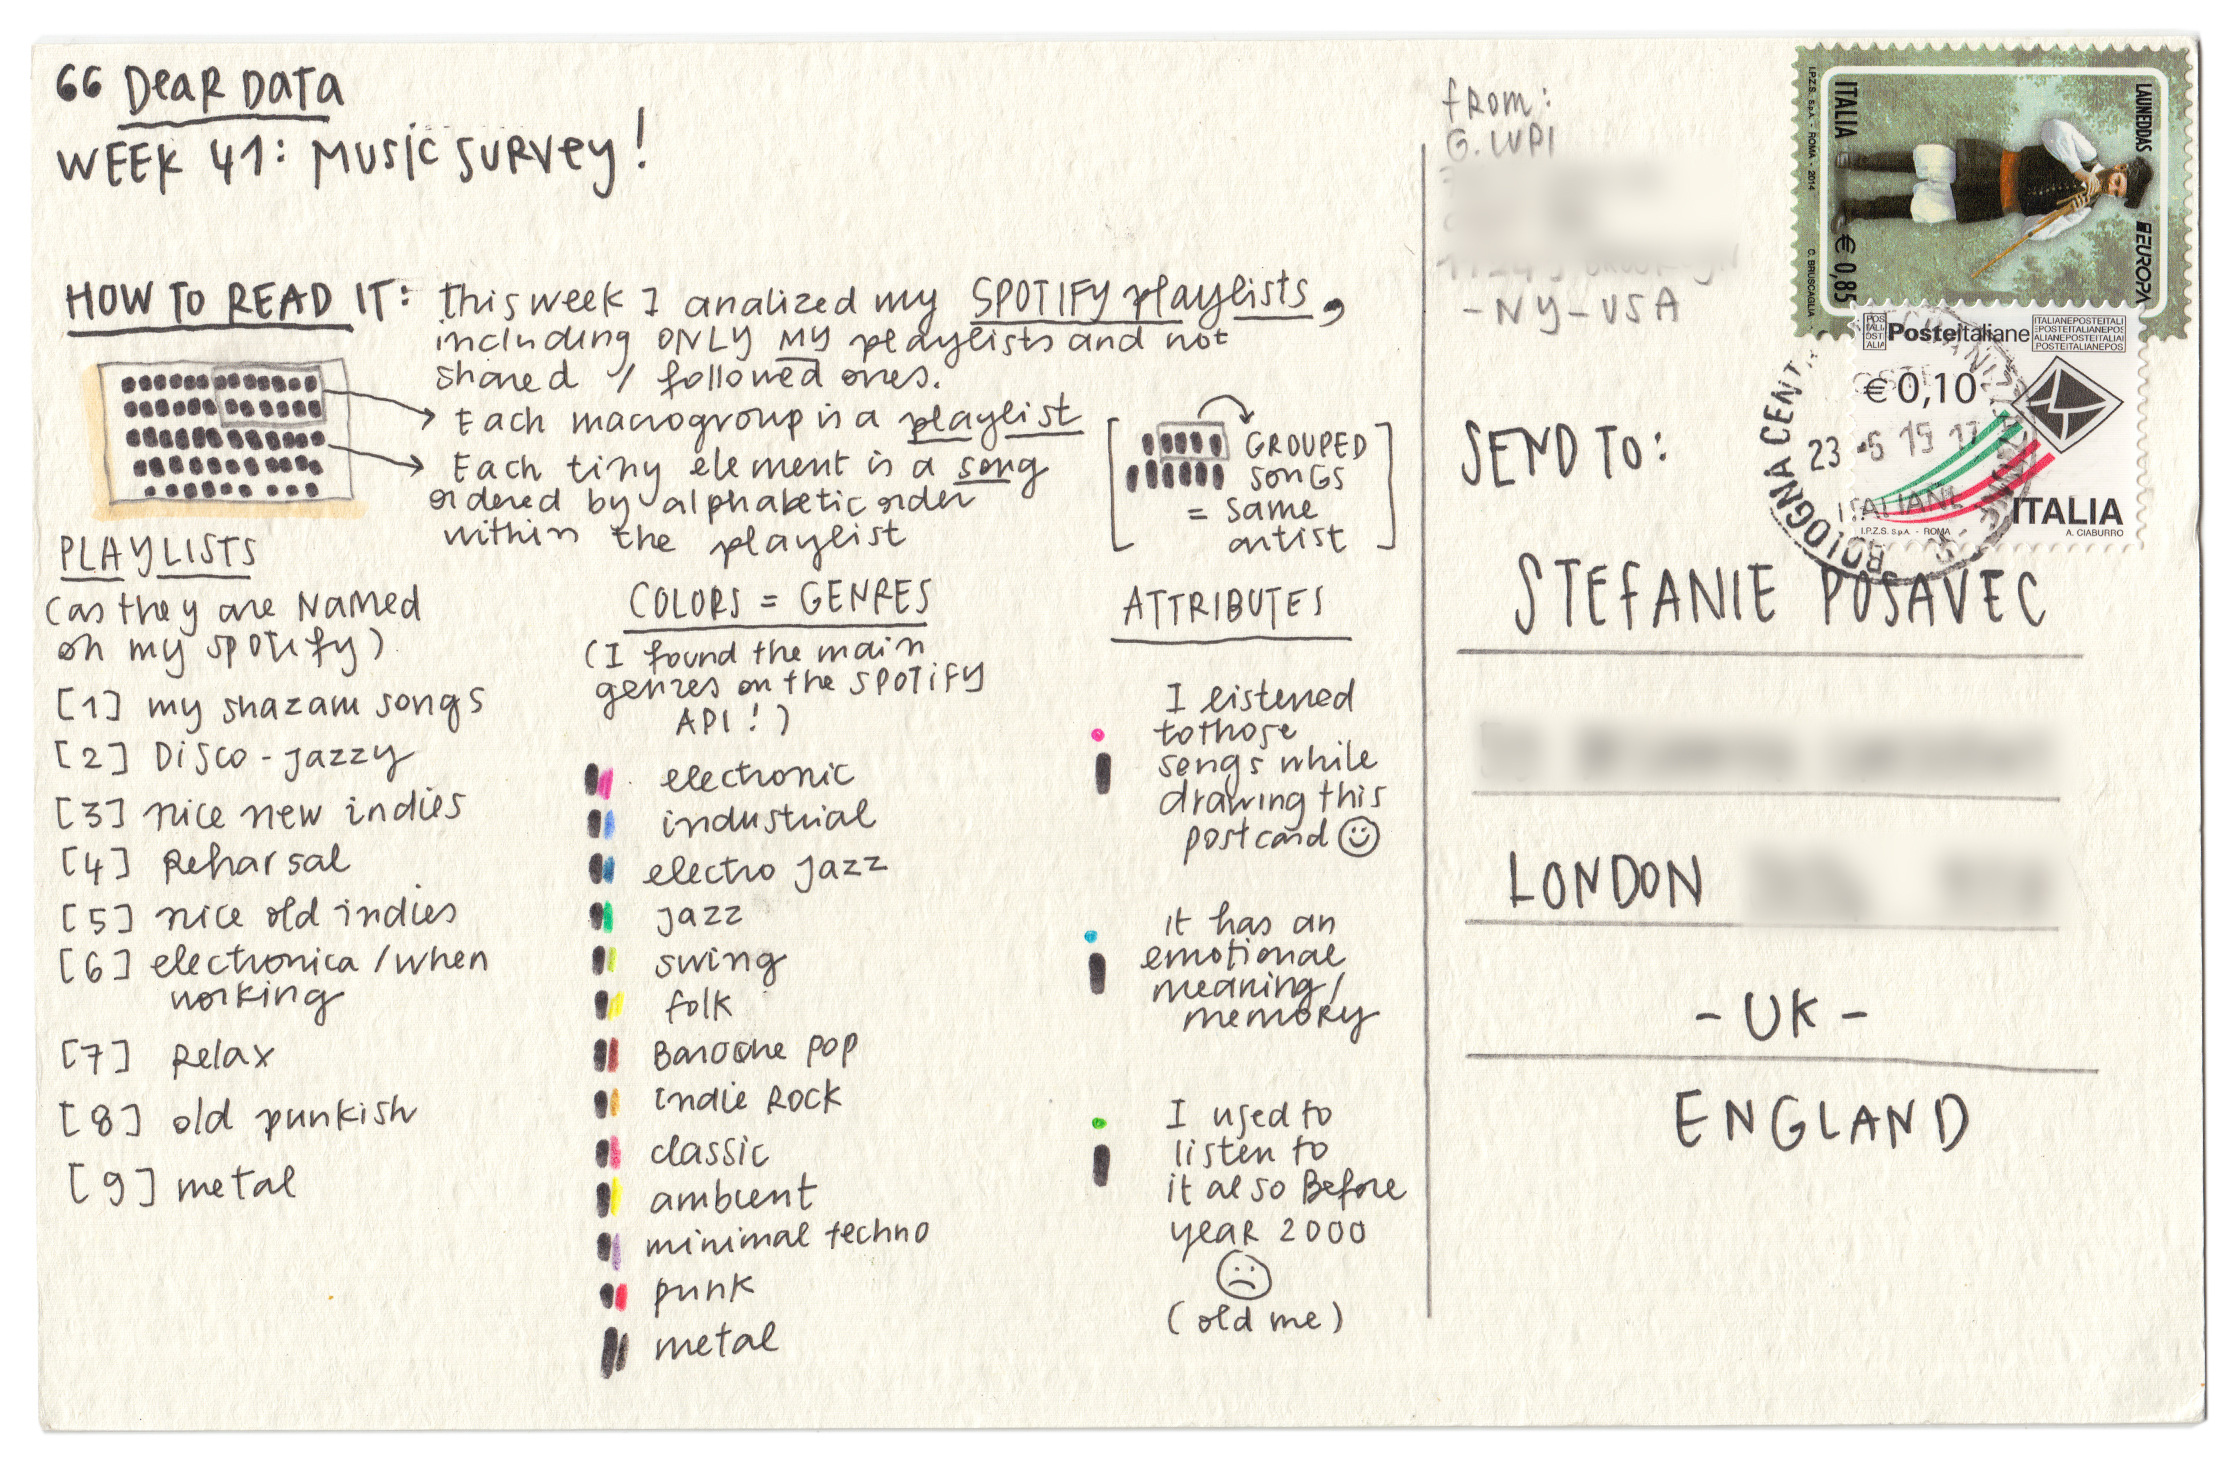 66 Dear Data
WEEK 41: Music survey!
HOW TO READ IT: this week I analized my SPOTIFY playlists,
including ONLY MY playlists and not
shared / followed ones.
Each macrogroup is a playlist
Each tiny element is a song
ordered by alphabetic order
within the playlist
[GROUPED
SONGS
= same
artist]
PLAYLISTS
(as they are NAMED
on my spotify)
[1] my shazam songs
[2] Disco-jazzy
[3] nice new indies
[4] Reharsal
[5] nice old indies
[6] electronica/when
working
[7] Relax
[8] old punkish
[9] metal
COLORS = GENRES
(I found the main
genres on the SPOTIFY
API!)
electronic
industrial
electro jazz
jazz
swing
folk
Baroque pop
indie Rock
classic
ambient
minimal techno
punk
metal
ATTRIBUTES
I listened
to those
songs while
drawing this
postcard
it has an
emotional
meaning/
memory
I used to
listen to
it also Before
year 2000
(old me)
from:
G. LUPI
-NY-USA
SEND TO:
STEFANIE POSAVEC
LONDON
-UK-
ENGLAND
LAUNEDDAS
EUROPA
ITALIA € 0,85
I.P.Z.S. S.p.A. - ROMA - 2014
C. BRUSCAGLIA
Posteitaliane
€ 0,10
ITALIA
I.P.Z.S. S.p.A. - ROMA
A. CIABURRO
BOLOGNA
23 -6 15 17